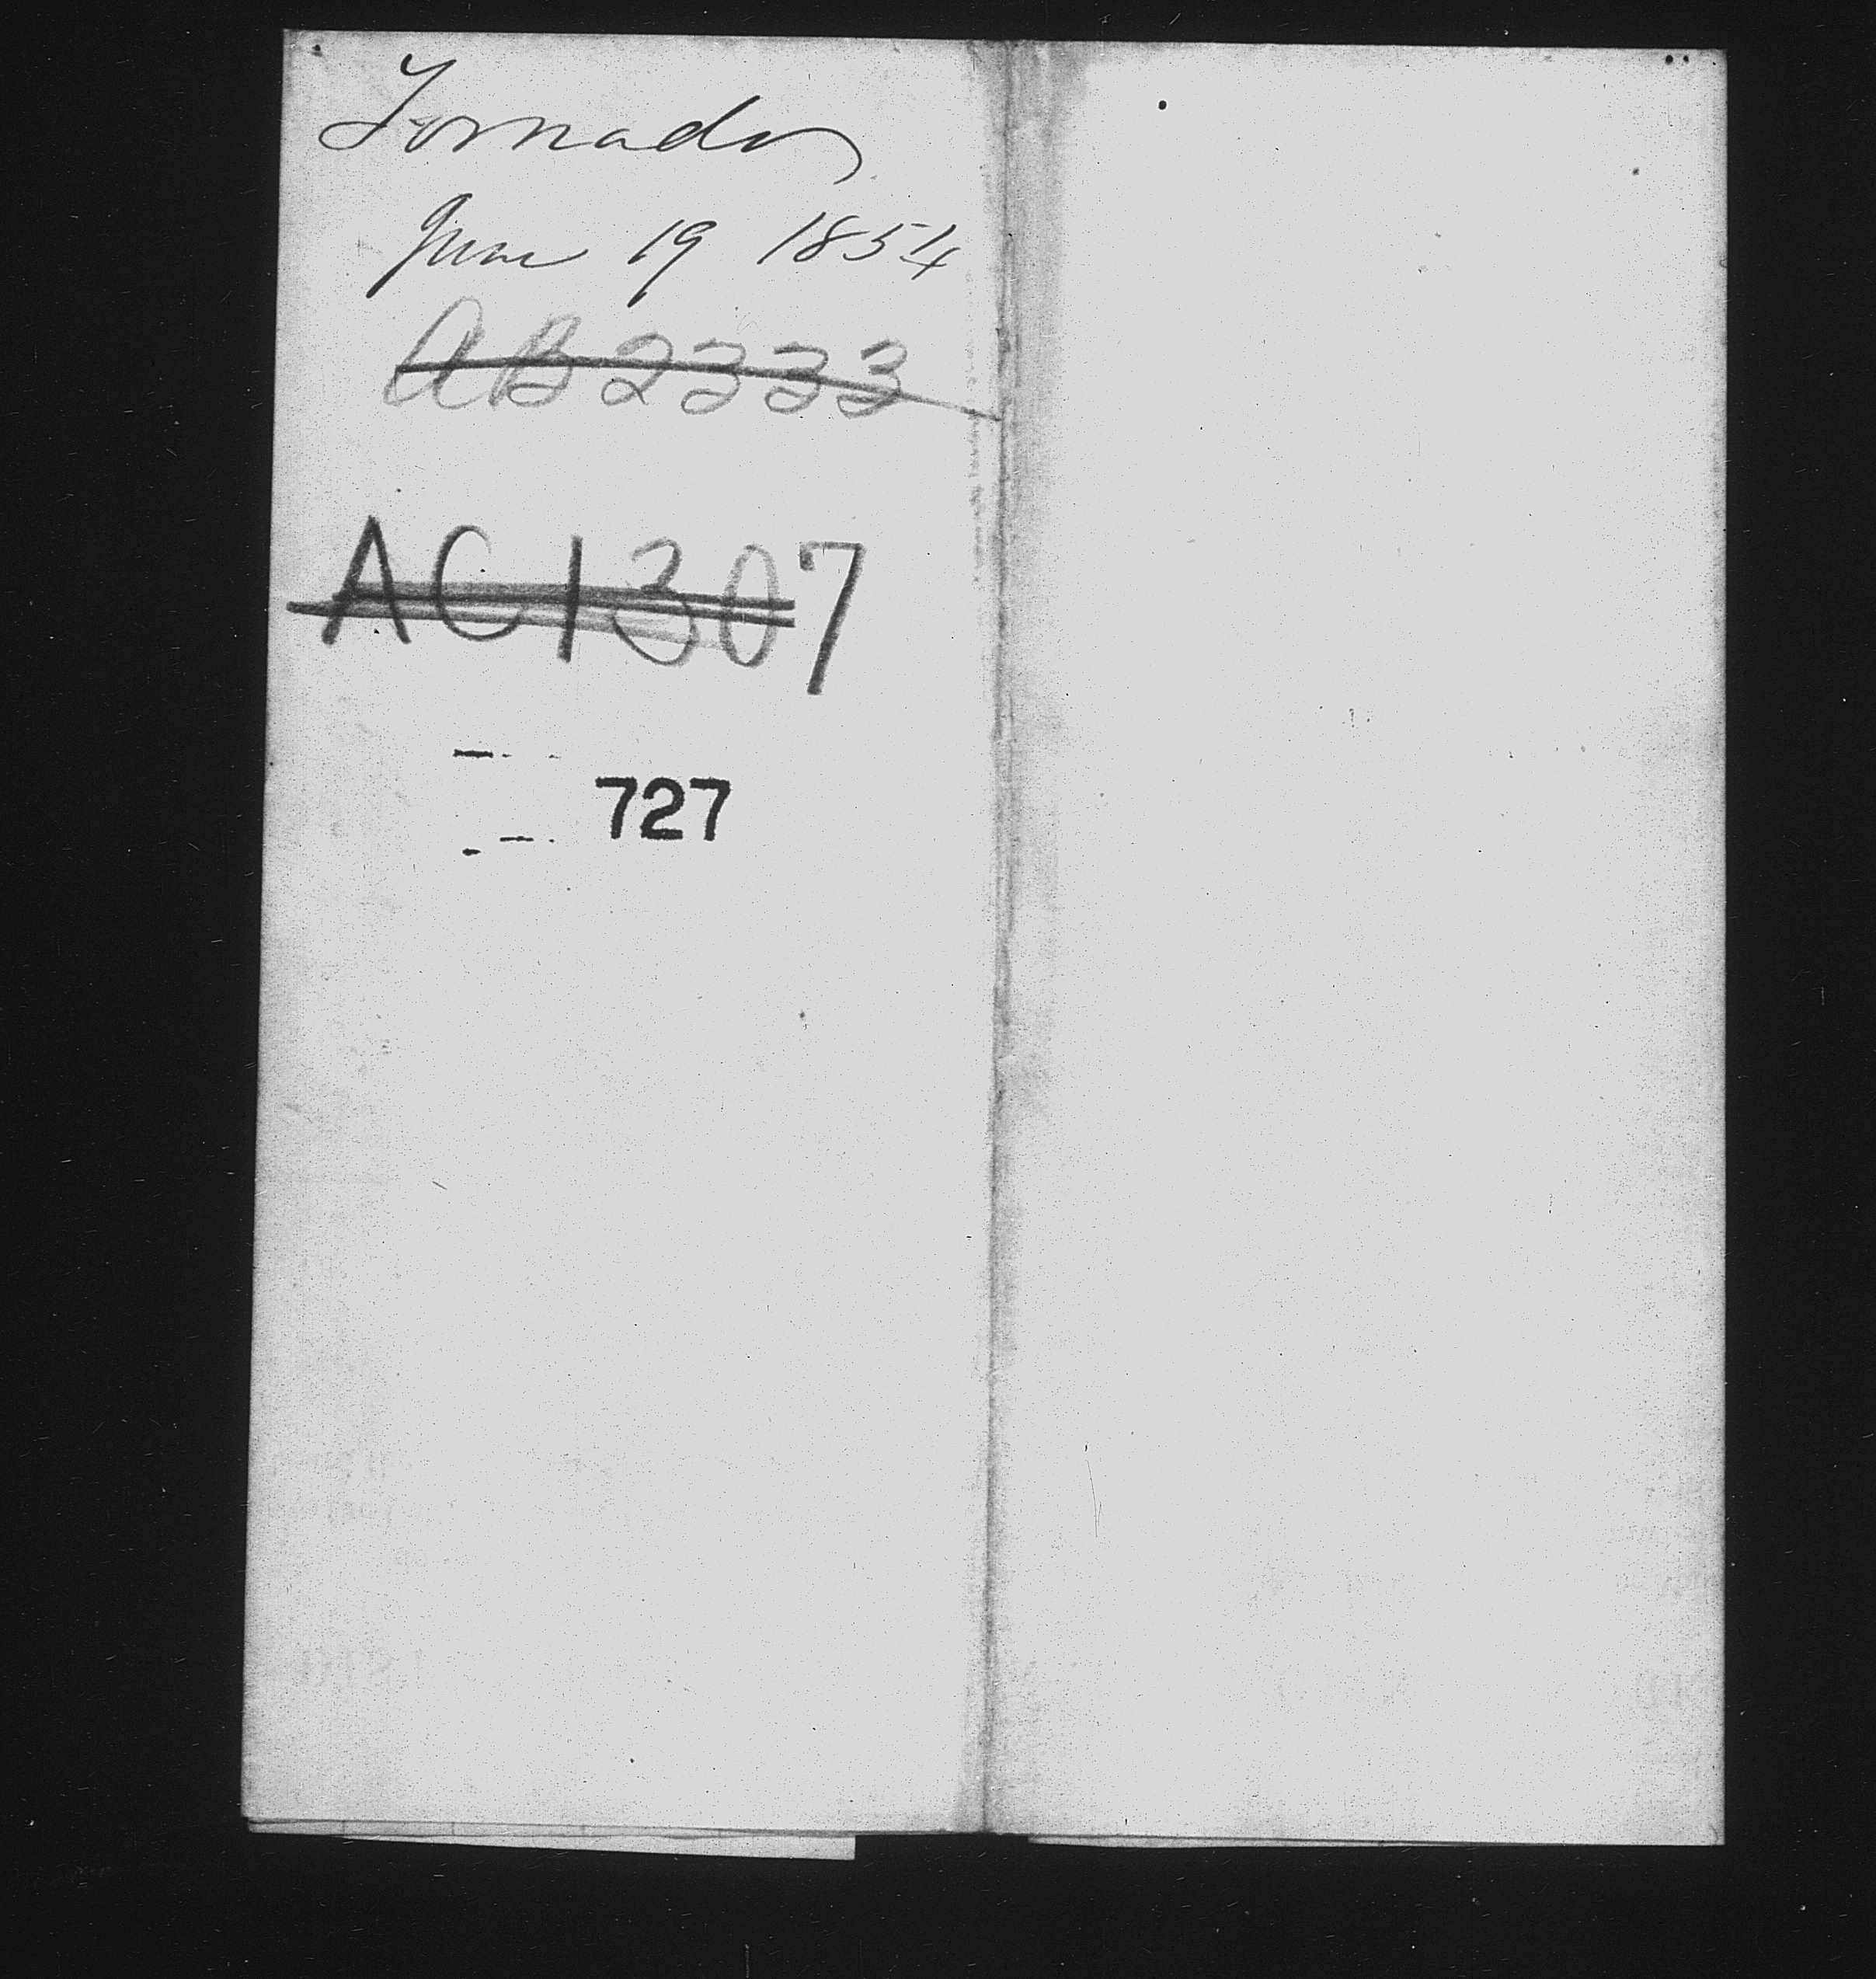 Tornado
June 19 1854
AB2333
AC1307
727